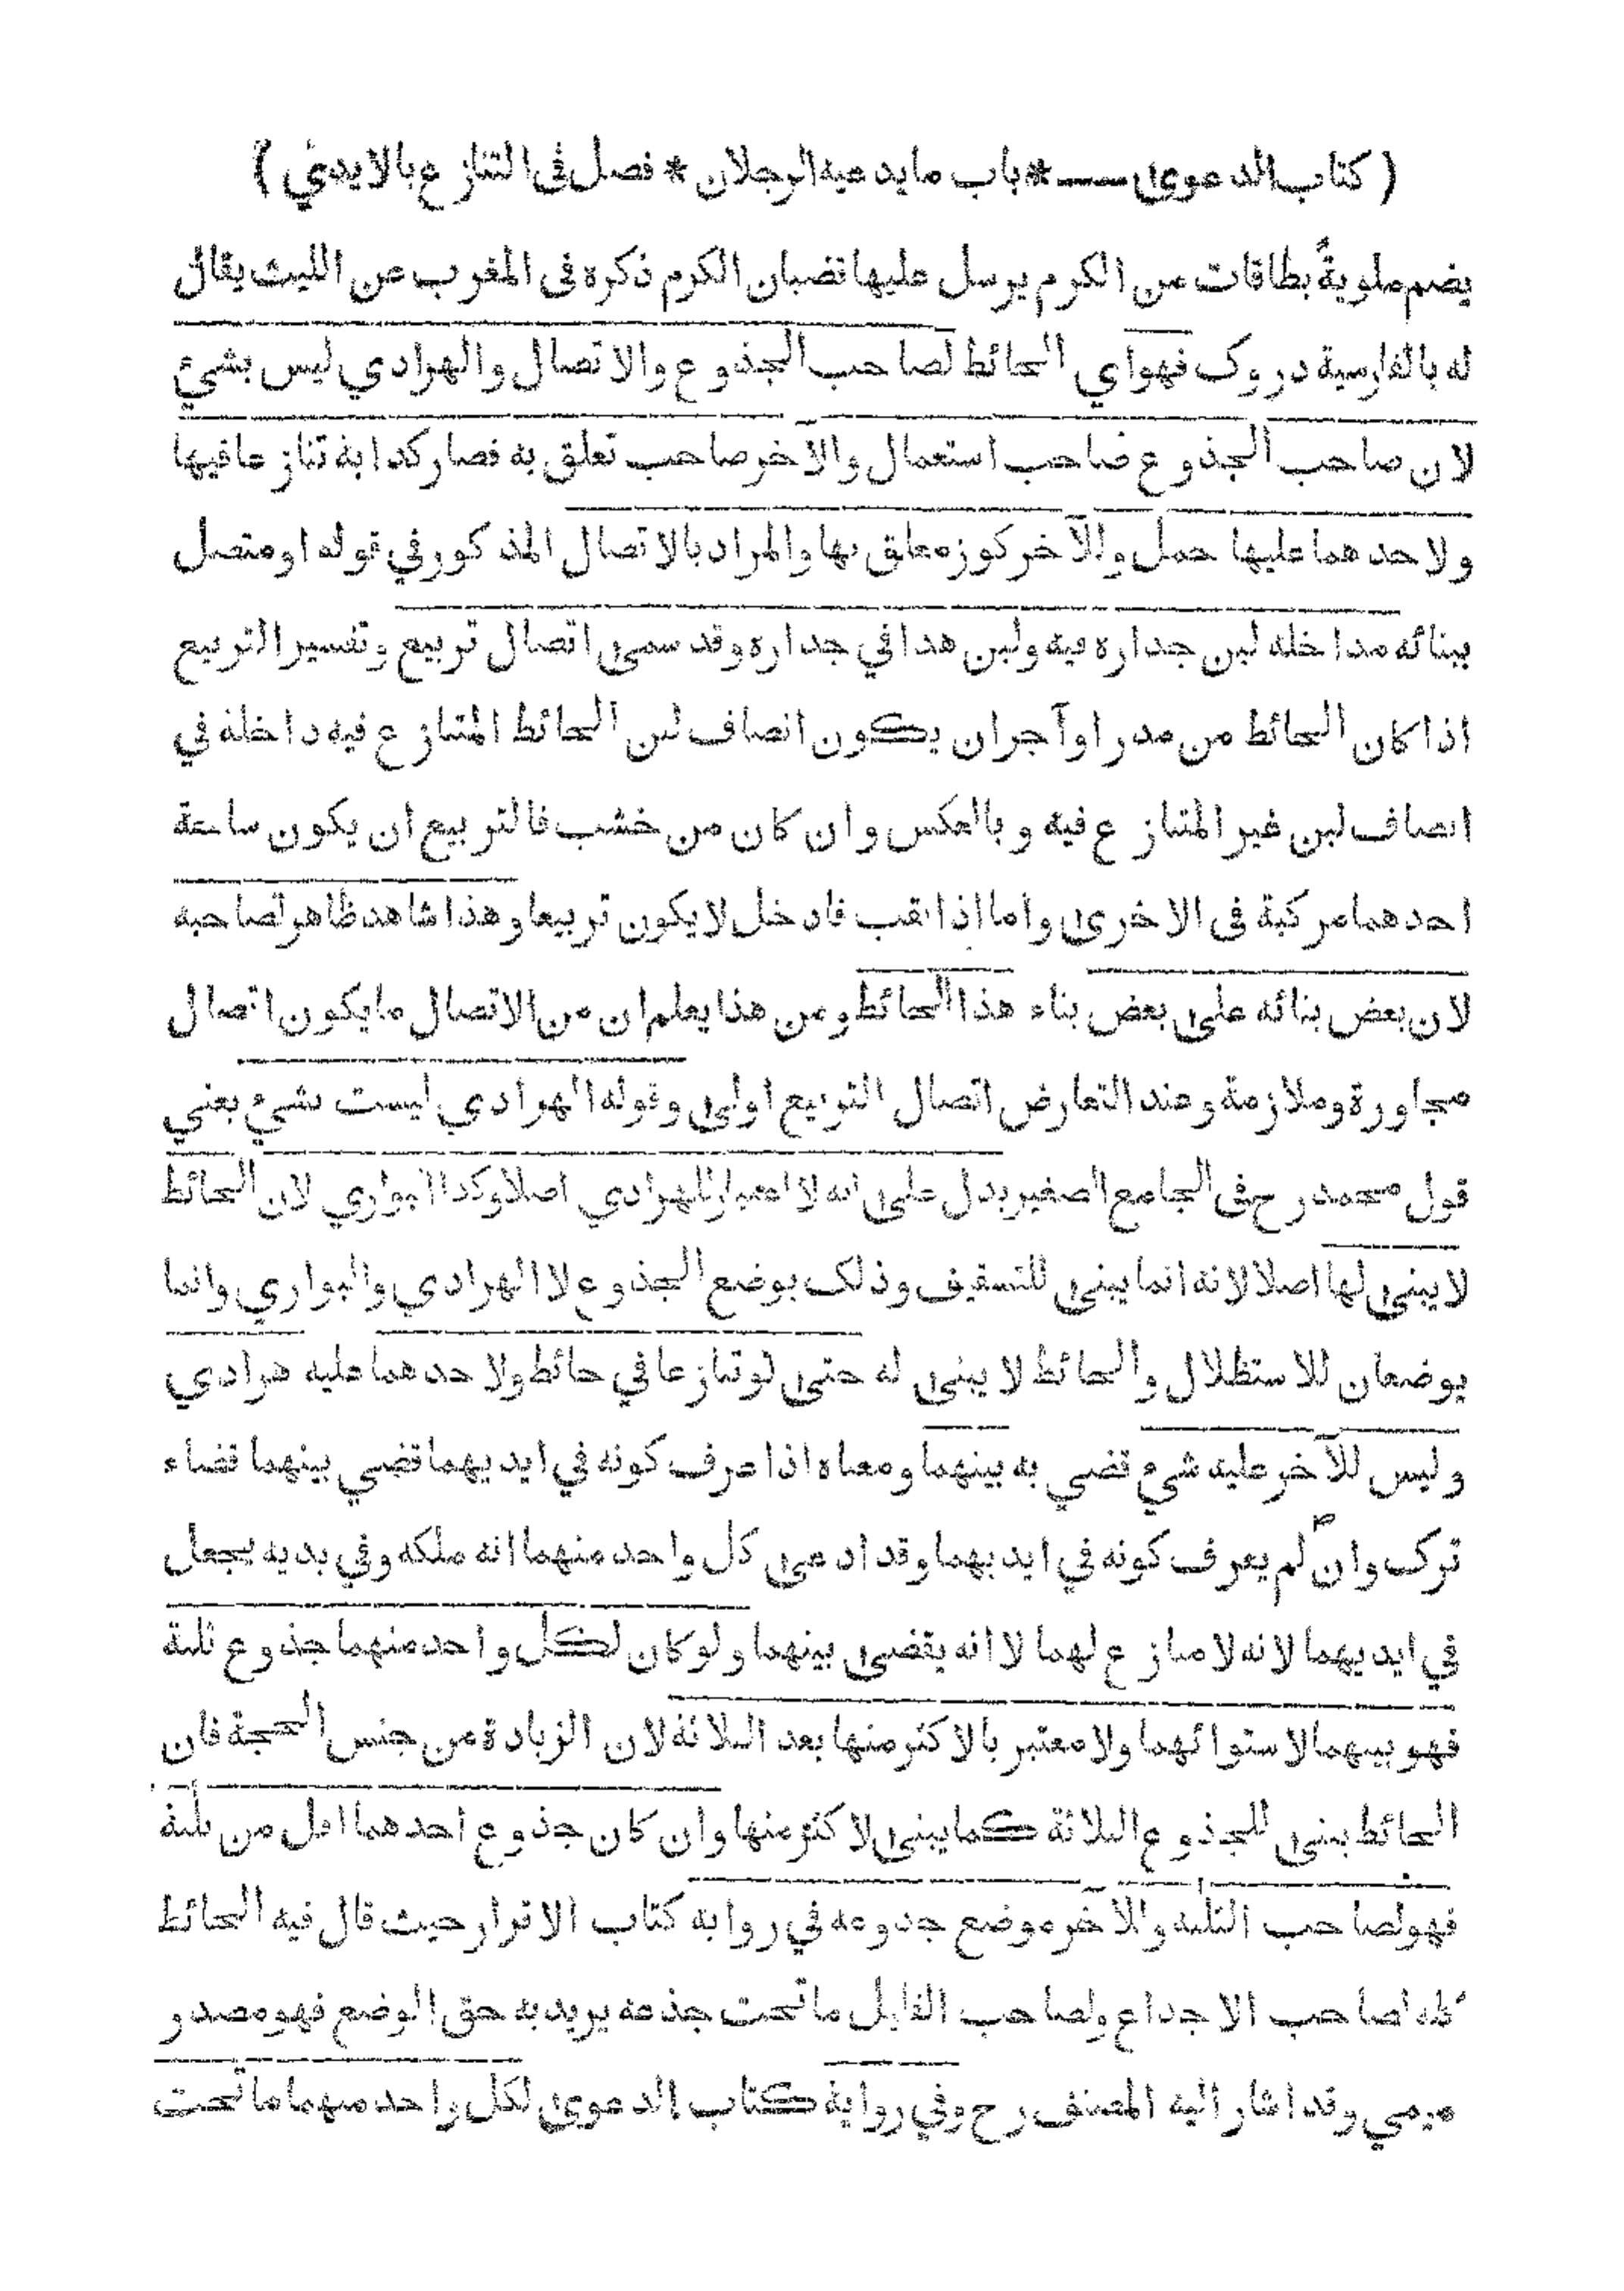 ( كتاب الدعوى — * باب ما يدعيه الرجلان * فصل فى التنازع بالايدي )
يضم ملوية بطاقات من الكرم يرسل عليها قضبان الكرم ذكره فى المغرب عن الليث يقال
له بالفارسية دروک فهو اي الحائط لصاحب الجذوع والاتصال والهرادي ليس بشئ
لان صاحب الجذوع صاحب استعمال والآخر صاحب تعلق به فصار كدابة تنازعا فيها
ولاحدهما عليها حمل وللآخر كوز معلق بها والمراد بالاتصال المذكور في قوله او متصل
ببنائه مداخلة لبن جداره فيه ولبن هدا في جداره وقد سمى اتصال تربيع وتفسير التربيع
اذا كان الحائط من مدر او آجر ان يكون انصاف لبن الحائط المتنازع فيه داخلة في
انصاف لبن غير المتنازع فيه وبالعكس وان كان من خشب فالتربيع ان يكون ساحة
احدهما مركبة فى الاخرى واما اذا نقب فادخل لا يكون تربيعا وهذا شاهد ظاهر لصاحبه
لان بعض بنائه على بعض بناء هذا الحائط ومن هذا يعلم ان من الاتصال ما يكون اتصال
مجاورة وملازمة وعند التعارض اتصال التربيع اولى وقوله الهرادي ليست بشيء يعني
قول محمد رح فى الجامع الصغير يدل على انه لا اعتبار للهرادي اصلا وكذا البواري لان الحائط
لا يبنى لها اصلا لانه انما يبنى للتسقيف وذلك بوضع الجذوع لا الهرادي والبواري وانما
يوضعان للاستظلال والحائط لا يبنى له حتى لو تنازعا في حائط ولاحدهما عليه هرادي
وليس للآخر عليه شيء قضي به بينهما ومعناه اذا عرف كونه في ايديهما قضي بينهما قضاء
ترك وان لم يعرف كونه في ايديهما وقد ادعى كل واحد منهما انه ملكه وفي يديه يجعل
في ايديهما لانه لا منازع لهما لا انه يقضى بينهما ولو كان لكل واحد منهما جذوع ثلثة
فهو بينهما لاستوائهما ولا معتبر بالاكثر منها بعد الثلاثة لان الزيادة من جنس الحجة فان
الحائط يبنى للجذوع الثلاثة كما يبنى لاكثر منها وان كان جذوع احدهما اقل من ثلثة
فهو لصاحب الثلثة وللآخر موضع جذوعه في رواية كتاب الاقرار حيث قال فيه الحائط
كله لصاحب الاجذاع ولصاحب القليل ما تحت جذعه يريد به حق الوضع فهو مصدر
ميمي وقد اشار اليه المصنف رح وفي رواية كتاب الدعوى لكل واحد منهما ما تحت